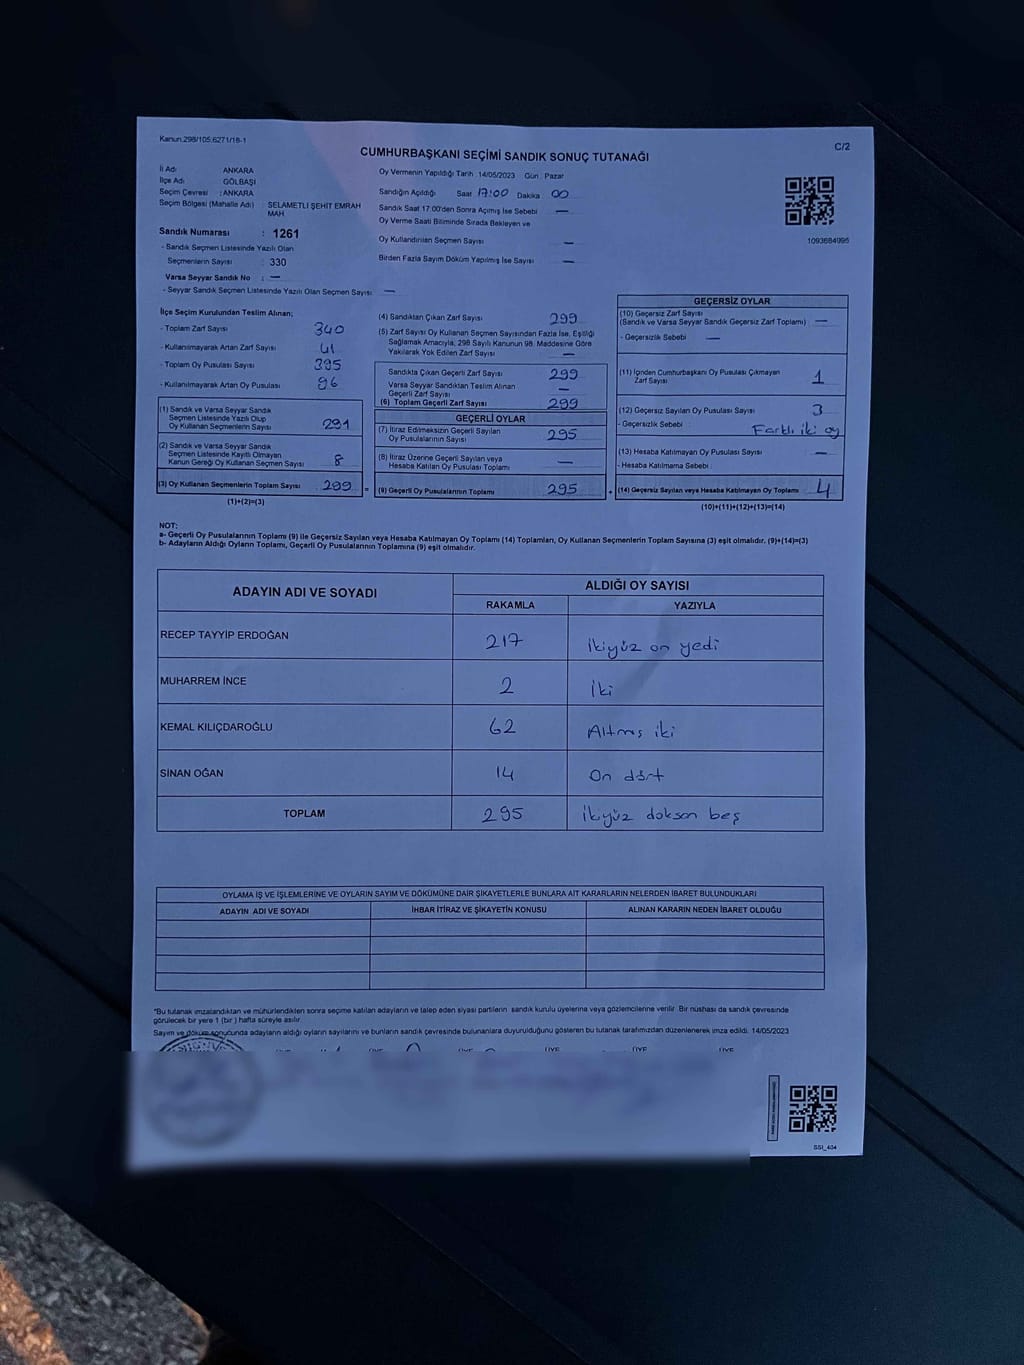 Kanun.298/105.6271/18-1
C/2
CUMHURBAŞKANI SEÇİMİ SANDIK SONUÇ TUTANAĞI
İl Adı ANKARA
İlçe Adı GÖLBAŞI
Seçim Çevresi : ANKARA
Seçim Bölgesi (Mahalle Adı) : SELAMETLİ ŞEHİT EMRAH MAH
Sandık Numarası : 1261
- Sandık Seçmen Listesinde Yazılı Olan
Seçmenlerin Sayısı : 330
Varsa Seyyar Sandık No : —
- Seyyar Sandık Seçmen Listesinde Yazılı Olan Seçmen Sayısı : —
Oy Vermenin Yapıldığı Tarih : 14/05/2023 Gün : Pazar
Sandığın Açıldığı Saat 17:00 Dakika 00
Sandık Saat 17:00'den Sonra Açılmış İse Sebebi —
Oy Verme Saati Bitiminde Sırada Bekleyen ve
Oy Kullandırılan Seçmen Sayısı —
Birden Fazla Sayım Döküm Yapılmış İse Sayısı —
1093684995
İlçe Seçim Kurulundan Teslim Alınan;
- Toplam Zarf Sayısı 340
- Kullanılmayarak Artan Zarf Sayısı 41
- Toplam Oy Pusulası Sayısı 395
- Kullanılmayarak Artan Oy Pusulası 96
(1) Sandık ve Varsa Seyyar Sandık
Seçmen Listesinde Yazılı Olup
Oy Kullanan Seçmenlerin Sayısı 291
(2) Sandık ve Varsa Seyyar Sandık
Seçmen Listesinde Kayıtlı Olmayan
Kanun Gereği Oy Kullanan Seçmen Sayısı 8
(3) Oy Kullanan Seçmenlerin Toplam Sayısı 299
(1)+(2)=(3)
(4) Sandıktan Çıkan Zarf Sayısı 299
(5) Zarf Sayısı Oy Kullanan Seçmen Sayısından Fazla İse, Eşitliği
Sağlamak Amacıyla, 298 Sayılı Kanunun 98. Maddesine Göre
Yakılarak Yok Edilen Zarf Sayısı —
Sandıkta Çıkan Geçerli Zarf Sayısı 299
Varsa Seyyar Sandıktan Teslim Alınan
Geçerli Zarf Sayısı —
(6) Toplam Geçerli Zarf Sayısı 299
GEÇERLİ OYLAR
(7) İtiraz Edilmeksizin Geçerli Sayılan
Oy Pusulalarının Sayısı 295
(8) İtiraz Üzerine Geçerli Sayılan veya
Hesaba Katılan Oy Pusulası Toplamı —
(9) Geçerli Oy Pusulalarının Toplamı 295
GEÇERSİZ OYLAR
(10) Geçersiz Zarf Sayısı
(Sandık ve Varsa Seyyar Sandık Geçersiz Zarf Toplamı) —
- Geçersizlik Sebebi : —
(11) İçinden Cumhurbaşkanı Oy Pusulası Çıkmayan
Zarf Sayısı 1
(12) Geçersiz Sayılan Oy Pusulası Sayısı 3
- Geçersizlik Sebebi : Farklı iki oy
(13) Hesaba Katılmayan Oy Pusulası Sayısı —
- Hesaba Katılmama Sebebi :
(14) Geçersiz Sayılan veya Hesaba Katılmayan Oy Toplamı 4
(10)+(11)+(12)+(13)=(14)
NOT:
a- Geçerli Oy Pusulalarının Toplamı (9) ile Geçersiz Sayılan veya Hesaba Katılmayan Oy Toplamı (14) Toplamları, Oy Kullanan Seçmenlerin Toplam Sayısına (3) eşit olmalıdır. (9)+(14)=(3)
b- Adayların Aldığı Oyların Toplamı, Geçerli Oy Pusulalarının Toplamına (9) eşit olmalıdır.
ADAYIN ADI VE SOYADI
ALDIĞI OY SAYISI
RAKAMLA YAZIYLA
RECEP TAYYİP ERDOĞAN 217 İkiyüz on yedi
MUHARREM İNCE 2 İki
KEMAL KILIÇDAROĞLU 62 Altmış iki
SİNAN OĞAN 14 On dört
TOPLAM 295 İkiyüz doksan beş
OYLAMA İŞ VE İŞLEMLERİNE VE OYLARIN SAYIM VE DÖKÜMÜNE DAİR ŞİKAYETLERLE BUNLARA AİT KARARLARIN NELERDEN İBARET BULUNDUKLARI
ADAYIN ADI VE SOYADI İHBAR İTİRAZ VE ŞİKAYETİN KONUSU ALINAN KARARIN NEDEN İBARET OLDUĞU
*Bu tutanak imzalandıktan ve mühürlendikten sonra seçime katılan adayların ve talep eden siyasi partilerin sandık kurulu üyelerine veya gözlemcilerine verilir. Bir nüshası da sandık çevresinde
görülecek bir yere 1 (bir) hafta süreyle asılır.
Sayım ve döküm sonucunda adayların aldığı oyların sayılarını ve bunların sandık çevresinde bulunanlara duyurulduğunu gösteren bu tutanak tarafımızdan düzenlenerek imza edildi. 14/05/2023
ÜYE ÜYE ÜYE ÜYE ÜYE ÜYE
SSI_404